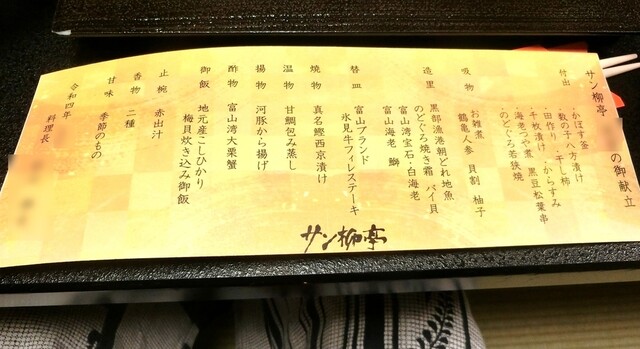 サン柳亭 の御献立
付出 ・かぼす釜
・数の子八方漬け
・田作り ・干し柿
・千枚漬け ・からすみ
・海老つや煮 ・黒豆松葉串
・のどぐろ若狭焼
吸物 お雑煮
鶴亀人参 貝割 柚子
造里 黒部漁港朝どれ地魚
のどぐろ焼き霜 バイ貝
富山湾宝石・白海老
富山海老 鰤
替皿 富山ブランド
氷見牛フィレステーキ
焼物 真名鰹西京漬け
温物 甘鯛包み蒸し
揚物 河豚から揚げ
酢物 富山湾大栗蟹
御飯 地元産こしひかり
梅貝炊き込み御飯
止椀 赤出汁
香物 二種
甘味 季節のもの
令和四年 料理長
サン柳亭